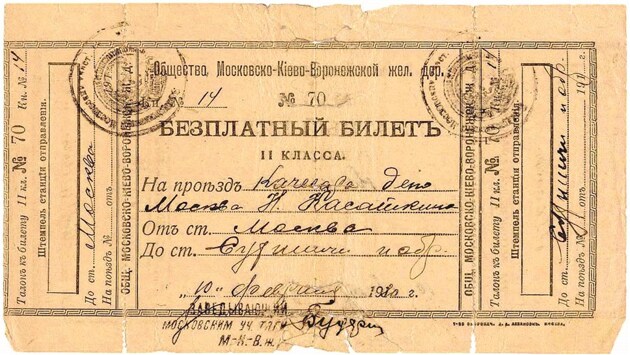 Общество Московско-Кіево-Воронежской жел. дор.
Кн. № 14 № 70
БЕЗПЛАТНЫЙ БИЛЕТЪ
II КЛАССА.
На проѣздъ депо
Москва Н. Касаткина
Отъ ст. Москва
До ст. и обр.
„10" февраля 19
ЗАВЕДЫВАЮЩІЙ
МОСКОВСКИМ УЧ. ТЯГИ
М.-К.-В. ж.
Талонъ къ билету II кл. № 70 Кн. № 14
Штемпель станціи отправленія.
До ст. Москва
На поѣздъ № отъ
ОБЩ. МОСКОВСКО-КІЕВО-ВОРОНЕЖ. Ж. Д.
ОБЩ. МОСКОВСКО-КІЕВО-ВОРОНЕЖ. Ж. Д.
Талонъ къ билету II кл. № 70 Кн. № 14
Штемпель станціи отправленія.
До ст. и обр.
На поѣздъ № отъ 191 г.